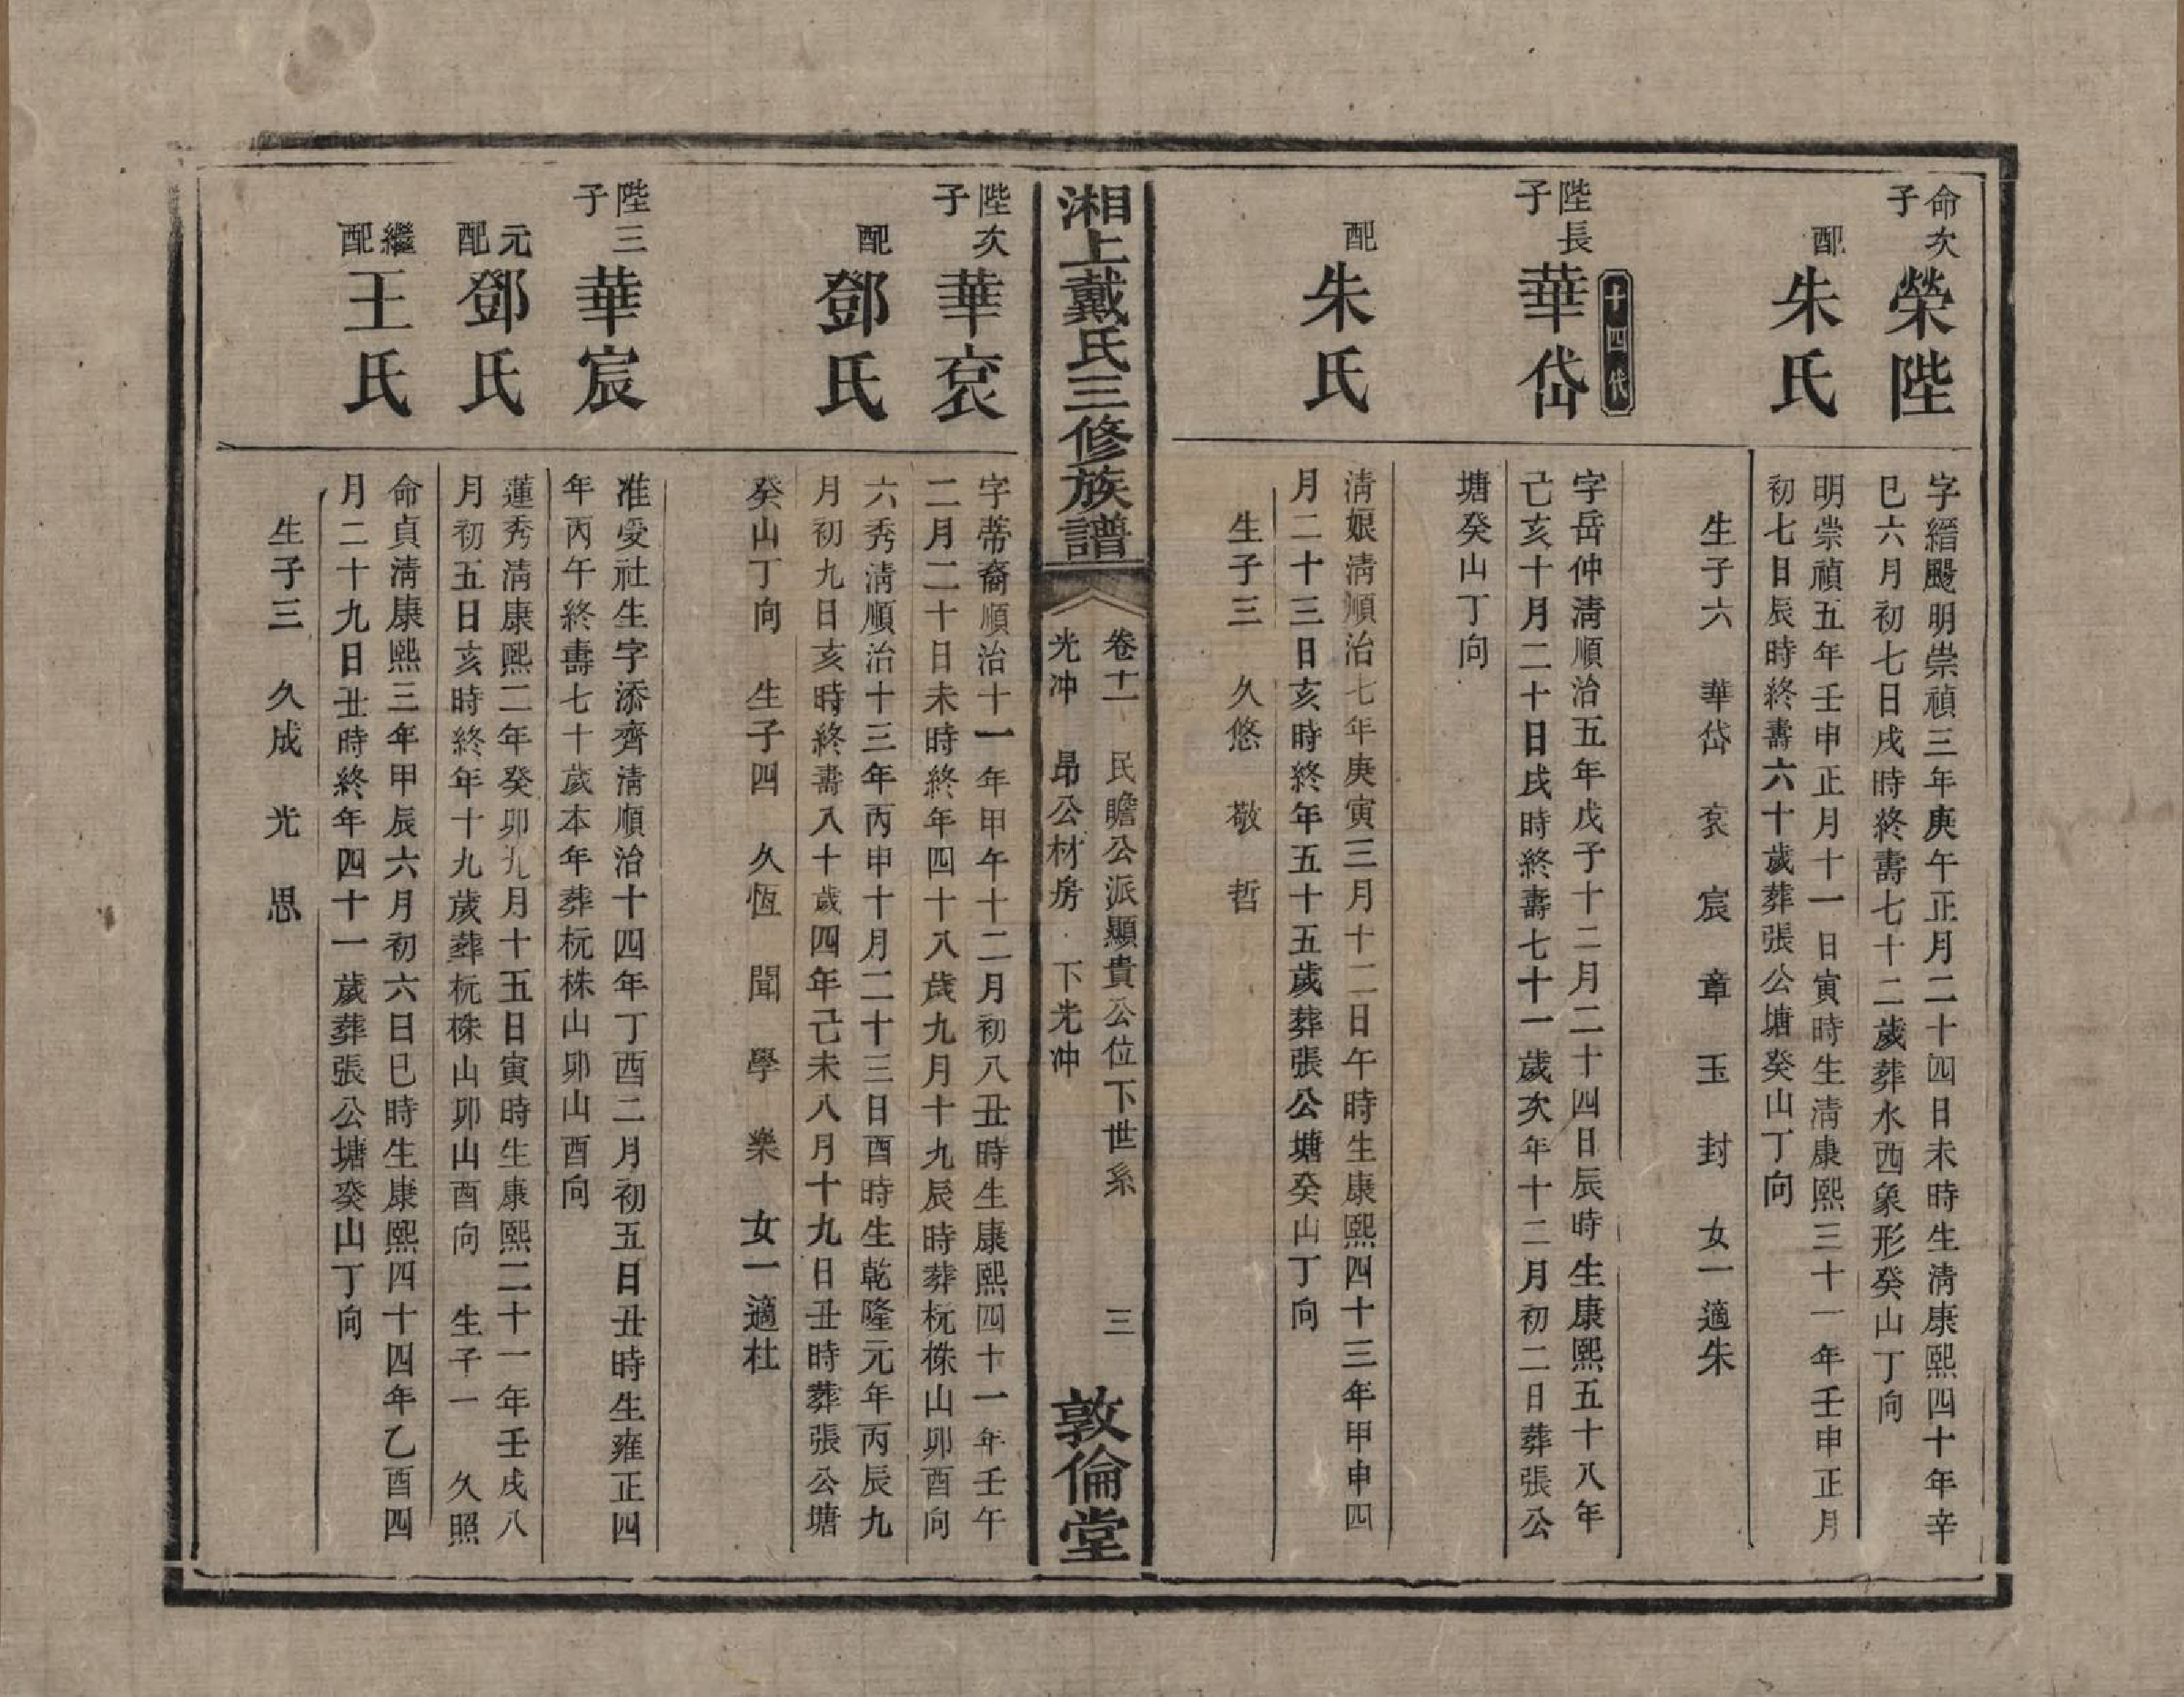 命次
子
榮陛
字縉颺明崇禎三年庚午正月二十四日未時生清康熙四十年辛
巳六月初七日戌時終壽七十二歲葬水西象形癸山丁向
配
朱氏
明崇禎五年壬申正月十一日寅時生清康熙三十一年壬申正月
初七日辰時終壽六十歲葬張公塘癸山丁向
生子六 華岱 袞 宸 章 玉 封 女一適朱
十四代
陛長
子
華岱
字岳仲清順治五年戊子十二月二十四日辰時生康熙五十八年
己亥十月二十日戌時終壽七十一歲次年十二月初二日葬張公
塘癸山丁向
配
朱氏
清娘清順治七年庚寅三月十二日午時生康熙四十三年甲申四
月二十三日亥時終年五十五歲葬張公塘癸山丁向
生子三 久悠 敬 哲
湘上戴氏三修族譜
卷十一 民瞻公派顯貴公位下世系 三
光冲 昂公材房 下光冲
敦倫堂
陛次
子
華袞
字蒂裔順治十一年甲午十二月初八丑時生康熙四十一年壬午
二月二十日未時終年四十八歲九月十九辰時葬杬株山卯酉向
配
鄧氏
六秀清順治十三年丙申十月二十三日酉時生乾隆元年丙辰九
月初九日亥時終壽八十歲四年己未八月十九日丑時葬張公塘
癸山丁向 生子四 久恆 聞 學 樂 女一適杜
陛三
子
華宸
准受社生字添齊清順治十四年丁酉二月初五日丑時生雍正四
年丙午終壽七十歲本年葬杬株山卯山酉向
元
配
鄧氏
蓮秀清康熙二年癸卯九月十五日寅時生康熙二十一年壬戌八
月初五日亥時終年十九歲葬杬株山卯山酉向 生子一 久照
繼
配
王氏
命貞清康熙三年甲辰六月初六日巳時生康熙四十四年乙酉四
月二十九日丑時終年四十一歲葬張公塘癸山丁向
生子三 久成 光 思